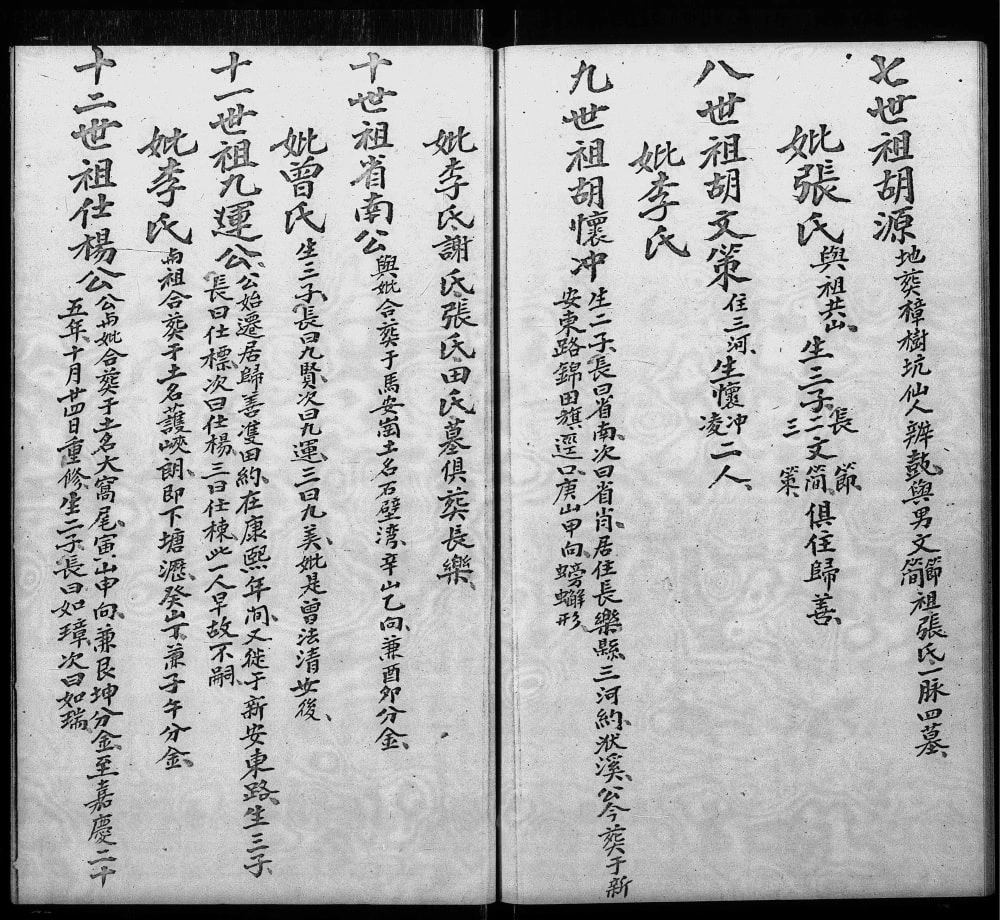 七世祖胡源地葬樟樹坑仙人辦鼓與男文節簡祖張氏一脉四墓
妣張氏與祖共山生三子長二三文節簡策俱住歸善
八世祖胡文策住三河生懷冲凌二人
妣李氏
九世祖胡懷冲生二子長曰省南次曰省肖居住長樂縣三河約狀溪公今葬于新
安東路錦田旗逕口庚山甲向螃蠏形
妣李氏謝氏張氏田氏墓俱葬長樂
十世祖省南公與妣合葬于馬安崗土名石壁湾辛山乙向兼酉卯分金
妣曾氏生三子長曰九賢次曰九運三曰九美妣是曾法清女後
十一世祖九運公公始遷居歸善灘田約在康熙年间又徙于新安東路生三子
長曰仕標次曰仕楊三曰仕棟此一人早故不嗣
妣李氏與祖合葬于土名護峽朗即下塘瀝癸山丁兼子午分金
十二世祖仕楊公公與妣合葬于土名大窩尾寅山申向兼艮坤分金至嘉慶二十
五年十月廿四日重修生二子長曰如璋次曰如瑞